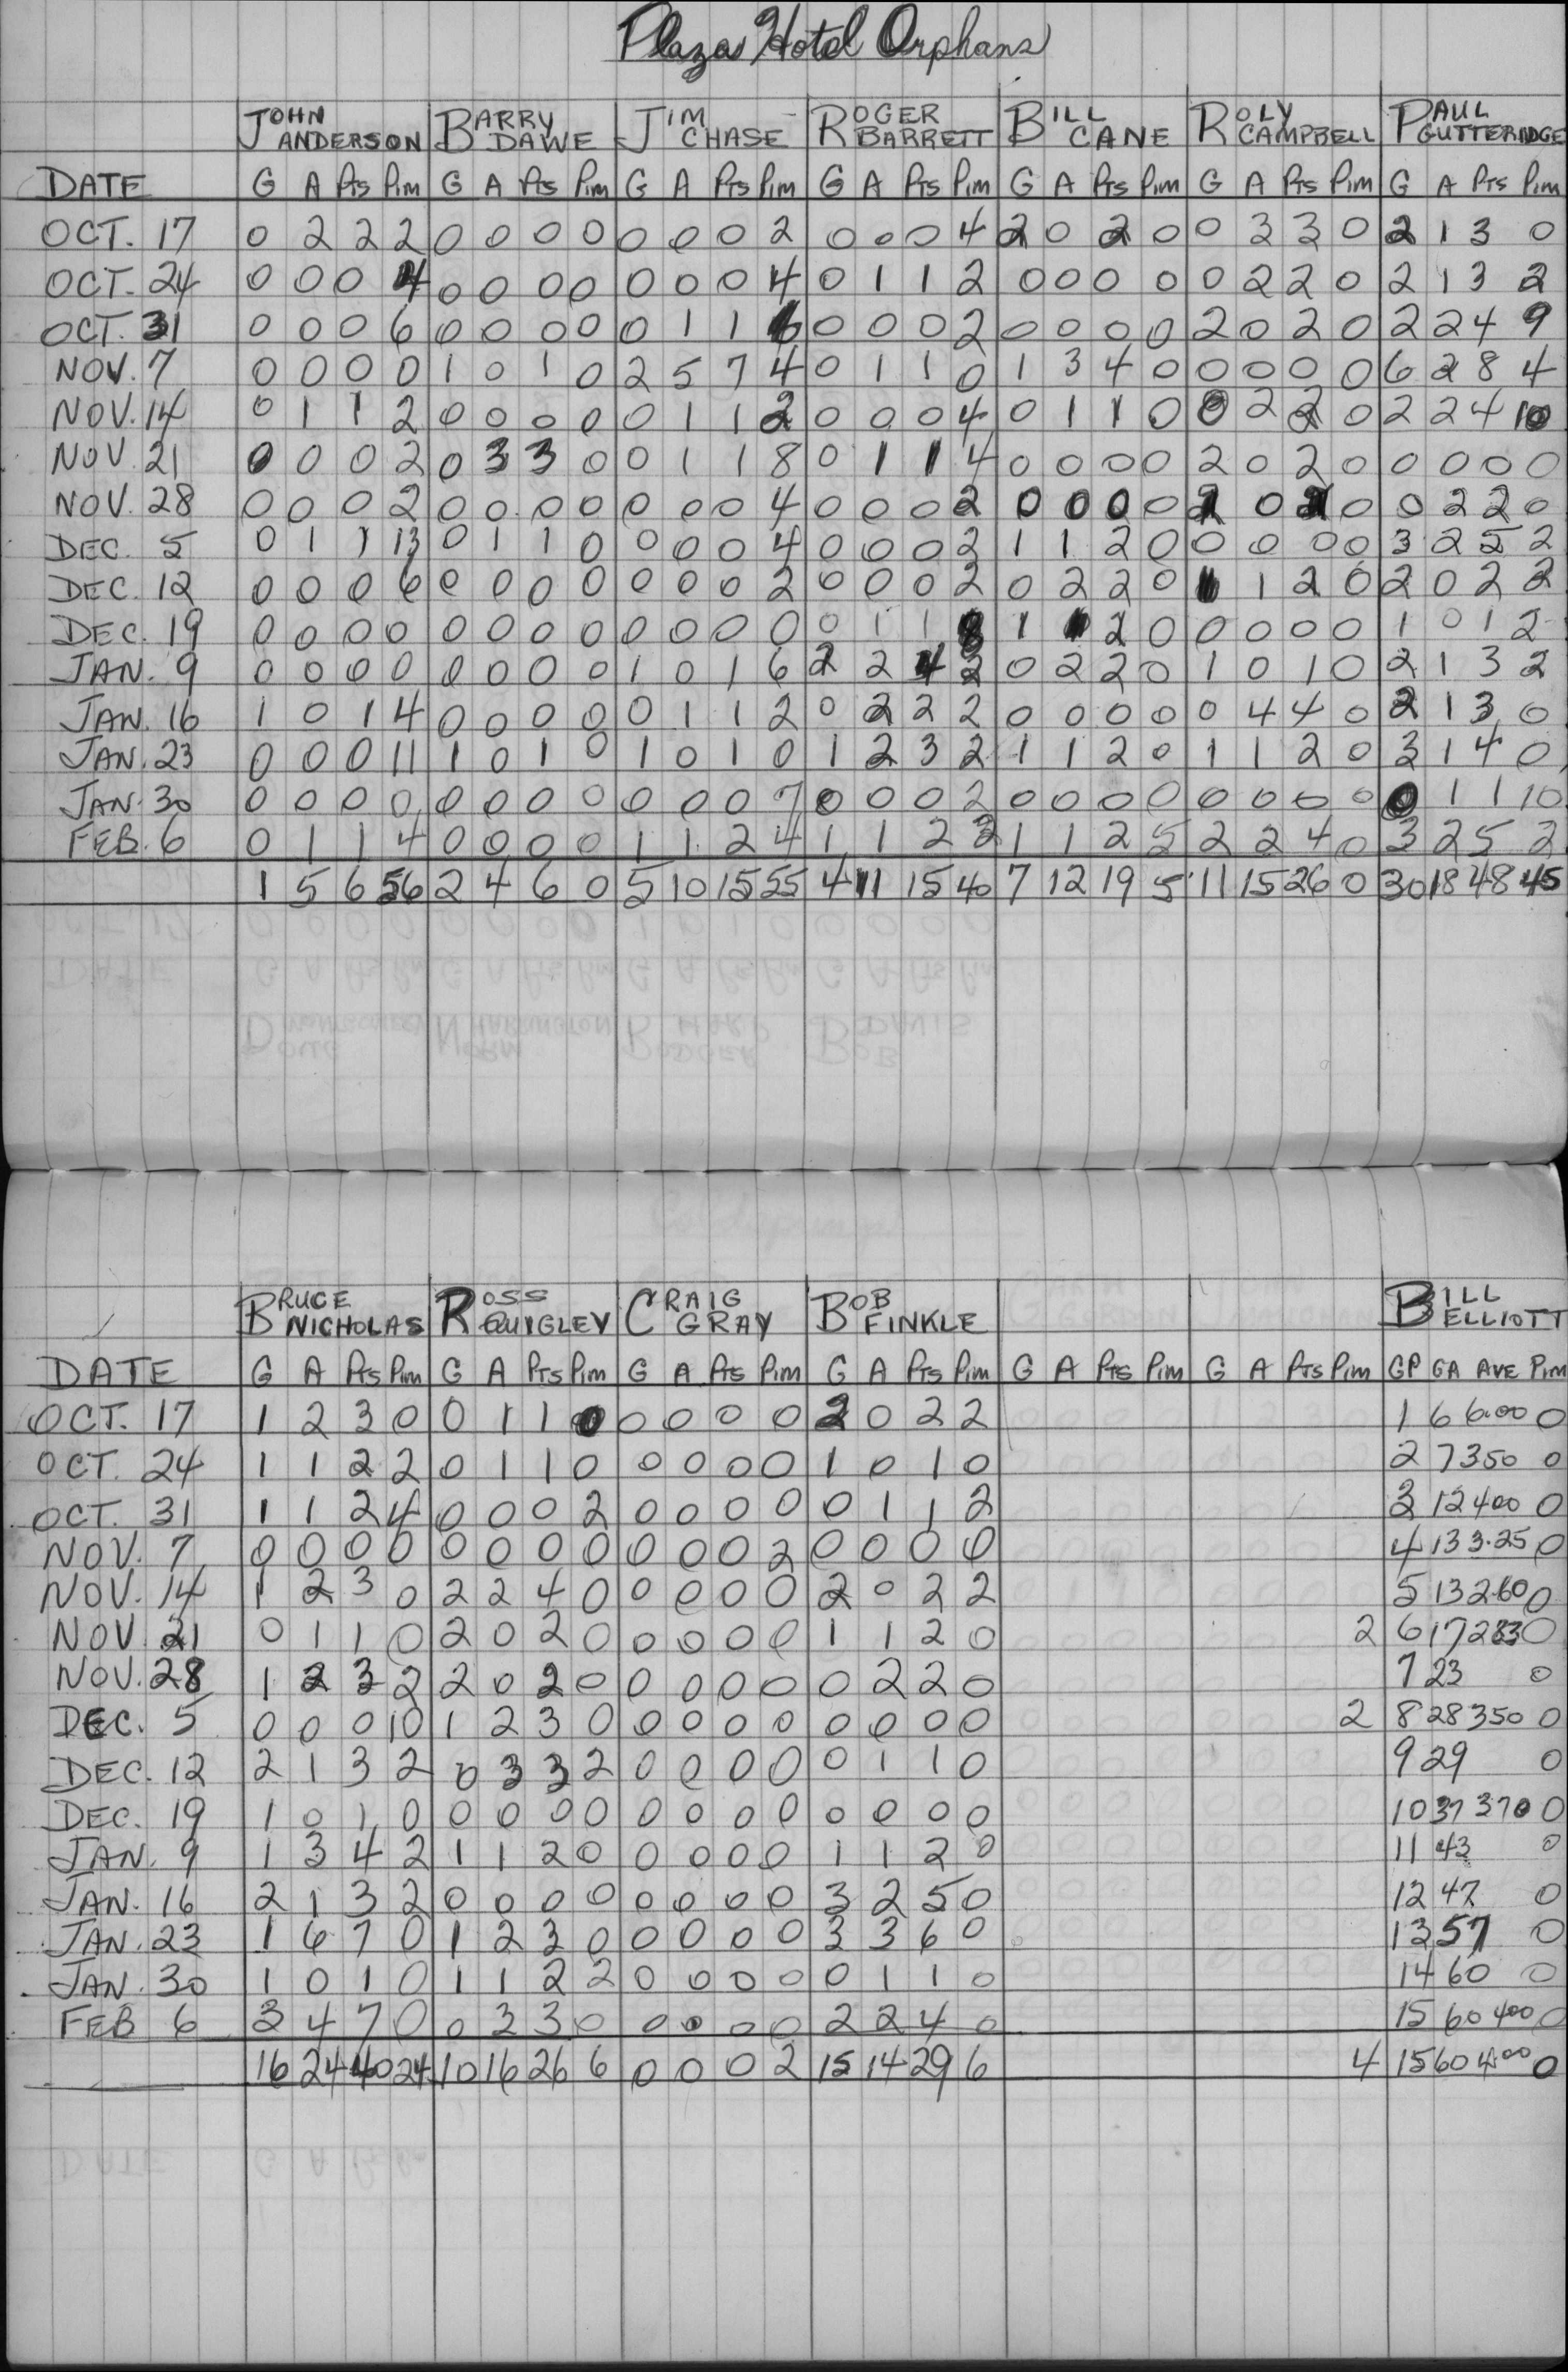 Plaza Hotel Orphans
JOHN ANDERSON BARRY DAWE JIM CHASE ROGER BARRETT BILL CANE ROLY CAMPBELL PAUL GUTTERIDGE
DATE G A Pts Pim G A Pts Pim G A Pts Pim G A Pts Pim G A Pts Pim G A Pts Pim G A Pts Pim
OCT. 17 0 2 2 2 0 0 0 0 0 0 0 2 0 0 0 4 2 0 2 0 0 3 3 0 2 1 3 0
OCT. 24 0 0 0 4 0 0 0 0 0 0 0 4 0 1 1 2 0 0 0 0 0 2 2 0 2 1 3 2
OCT. 31 0 0 0 6 0 0 0 0 0 1 1 6 0 0 0 2 0 0 0 0 2 0 2 0 2 2 4 9
NOV. 7 0 0 0 0 1 0 1 0 2 5 7 4 0 1 1 0 1 3 4 0 0 0 0 0 6 2 8 4
NOV. 14 0 1 1 2 0 0 0 0 0 1 1 2 0 0 0 4 0 1 1 0 0 2 2 0 2 2 4 10
NOV 21 0 0 0 2 0 3 3 0 0 1 1 8 0 1 1 4 0 0 0 0 2 0 2 0 0 0 0 0
NOV. 28 0 0 0 2 0 0 0 0 0 0 0 4 0 0 0 2 0 0 0 0 0 0 0 2 2 0
DEC. 5 0 1 1 13 0 1 1 0 0 0 0 4 0 0 0 2 1 1 2 0 0 0 0 0 3 2 5 2
DEC. 12 0 0 0 6 0 0 0 0 0 0 0 2 0 0 0 2 0 2 2 0 1 1 2 0 2 0 2 2
DEC. 19 0 0 0 0 0 0 0 0 0 0 0 0 0 1 1 8 1 1 2 0 0 0 0 0 1 0 1 2
JAN. 9 0 0 0 0 0 0 0 0 1 0 1 6 2 2 4 2 0 2 2 0 1 0 1 0 2 1 3 2
JAN. 16 1 0 1 4 0 0 0 0 0 1 1 2 0 2 2 2 0 0 0 0 0 4 4 0 2 1 3 0
JAN. 23 0 0 0 11 1 0 1 0 1 0 1 0 1 2 3 2 1 1 2 0 1 1 2 0 3 1 4 0
JAN. 30 0 0 0 0 0 0 0 0 0 0 0 7 0 0 0 2 0 0 0 0 0 0 0 0 0 1 1 10
FEB. 6 0 1 1 4 0 0 0 0 1 1 2 4 1 1 2 2 1 1 2 5 2 2 4 0 3 2 5 2
1 5 6 56 2 4 6 0 5 10 15 55 4 11 15 40 7 12 19 5 11 15 26 0 30 18 48 45
BRUCE NICHOLAS ROSS QUIGLEY CRAIG GRAY BOB FINKLE BILL ELLIOTT
DATE G A Pts Pim G A Pts Pim G A Pts Pim G A Pts Pim G A Pts Pim G A Pts Pim GP GA AVE Pim
OCT. 17 1 2 3 0 0 1 1 0 0 0 0 0 2 0 2 2 1 6 6.00 0
OCT. 24 1 1 2 2 0 1 1 0 0 0 0 0 1 0 1 0 2 7 350 0
OCT. 31 1 1 2 4 0 0 0 2 0 0 0 0 0 1 1 2 3 12 400 0
NOV. 7 0 0 0 0 0 0 0 0 0 0 0 2 0 0 0 0 4 13 3.25 0
NOV. 14 1 2 3 0 2 2 4 0 0 0 0 0 2 0 2 2 5 13 260 0
NOV 21 0 1 1 0 2 0 2 0 0 0 0 0 1 1 2 0 2 6 17 283 0
NOV. 28 1 2 3 2 2 0 2 0 0 0 0 0 0 2 2 0 7 23 0
DEC. 5 0 0 0 10 1 2 3 0 0 0 0 0 0 0 0 0 2 8 28 350 0
DEC. 12 2 1 3 2 0 3 3 2 0 0 0 0 0 1 1 0 9 29 0
DEC. 19 1 0 1 0 0 0 0 0 0 0 0 0 0 0 0 0 10 37 370 0
JAN. 9 1 3 4 2 1 1 2 0 0 0 0 0 1 1 2 0 11 43 0
JAN. 16 2 1 3 2 0 0 0 0 0 0 0 0 3 2 5 0 12 47 0
JAN. 23 1 6 7 0 1 2 3 0 0 0 0 0 3 3 6 0 13 57 0
JAN. 30 1 0 1 0 1 1 2 2 0 0 0 0 0 1 1 0 14 60 0
FEB 6 3 4 7 0 0 3 3 0 0 0 0 0 2 2 4 0 15 60 400 0
16 24 40 24 10 16 26 6 0 0 0 2 15 14 29 6 4 15 60 400 0